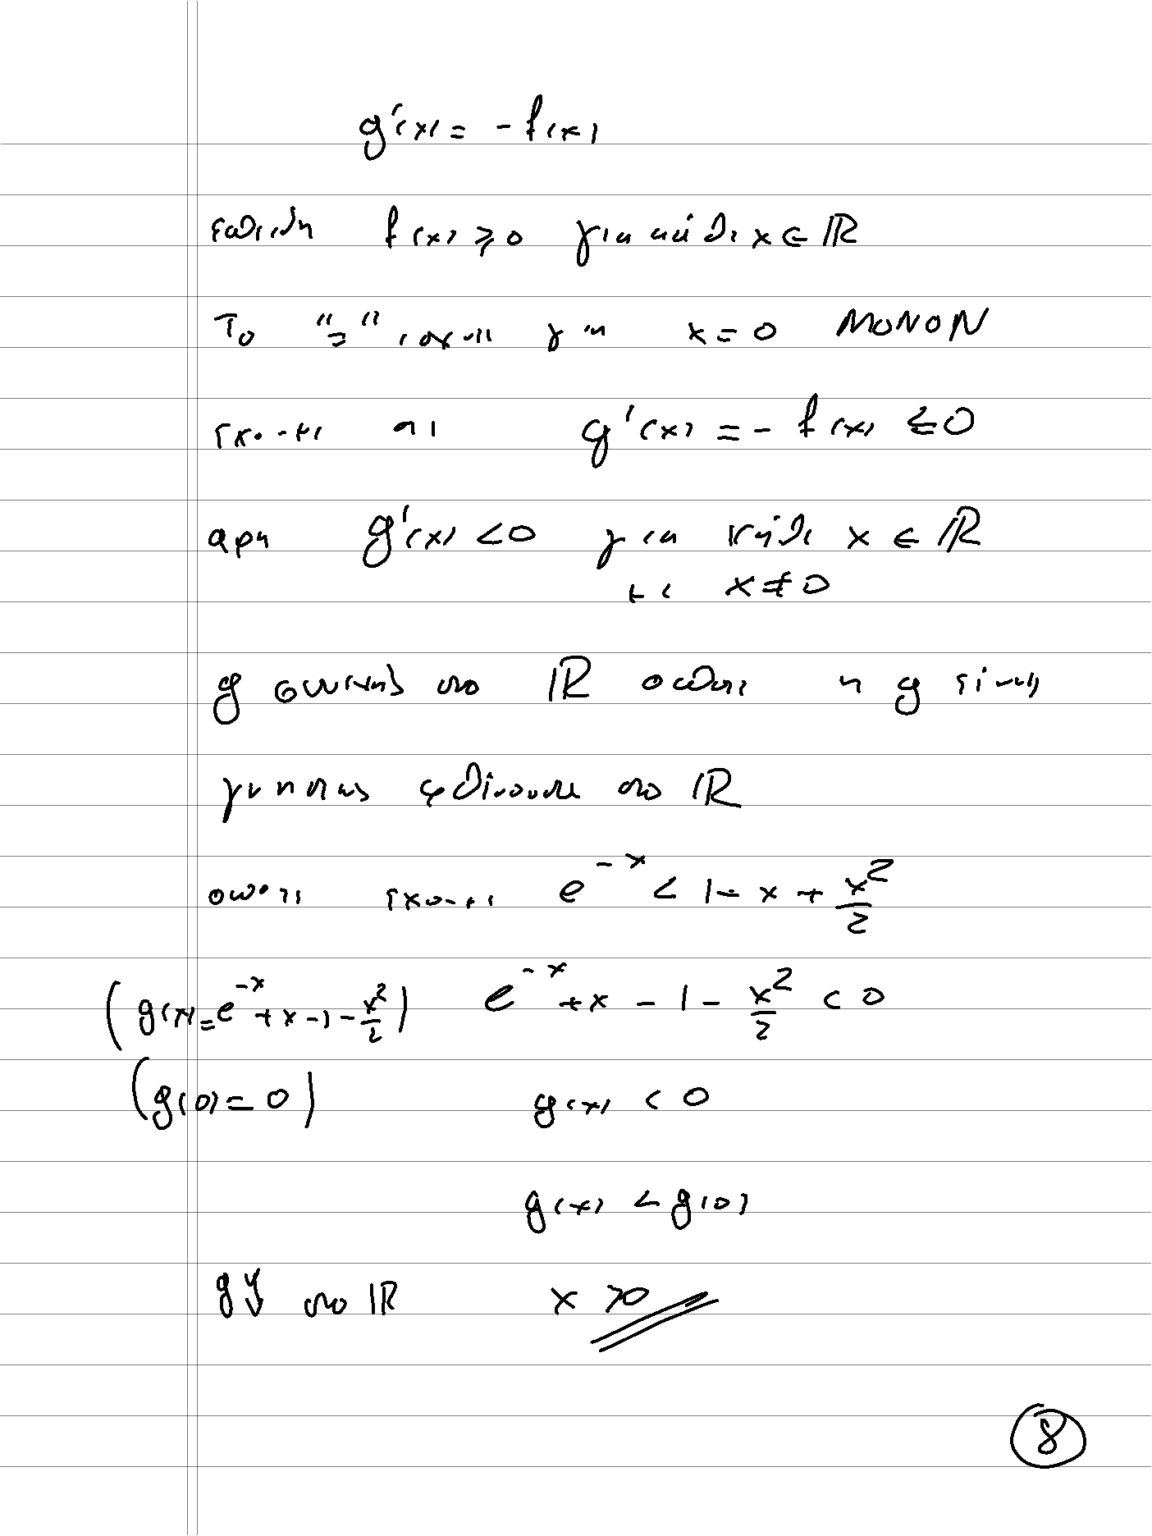 g'(x) = -f(x)
επειδή f(x) ≥ 0 για κάθε x ∈ ℝ
Το "=" ισχύει για x = 0 ΜΟΝΟΝ
έχουμε g'(x) = -f(x) ≤ 0
άρα g'(x) < 0 για κάθε x ∈ ℝ
με x ≠ 0
g συνεχής στο ℝ οπότε η g είναι
γνησίως φθίνουσα στο ℝ
οπότε έχουμε e^{-x} < 1 - x + x²/2
(g(x) = e^{-x} + x - 1 - x²/2) e^{-x} + x - 1 - x²/2 < 0
(g(0) = 0) g(x) < 0
g(x) < g(0)
g ↘ στο ℝ x > 0
8